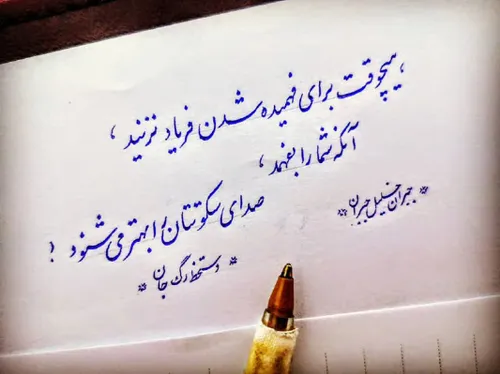 ، هیچوقت برای فهمیده شدن فریاد نزنید ،
آنکه شما را بفهمد ،
صدای سکوتتان را بهتر می شنود !
* جبران خلیل جبران *
* دستخط رگ جان *